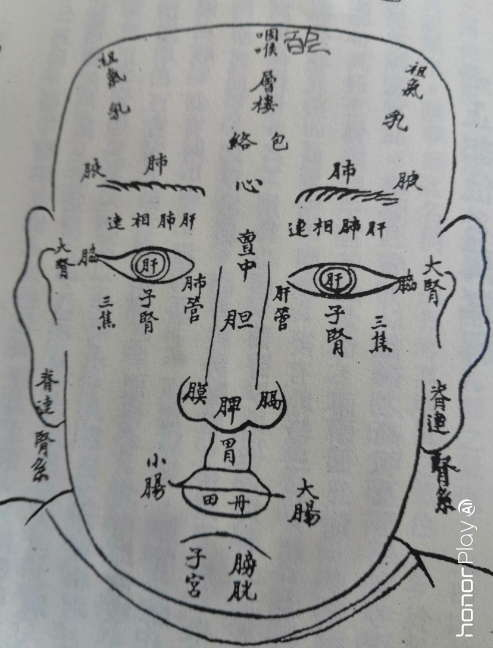 咽喉
祖氣
乳
層樓
祖氣
乳
包絡
腋
肺
心
肺
腋
肝肺相連
肝肺相連
中
大腎
腦
肝
肺管
肝管
肝
腦
大腎
三焦
子腎
胆
子腎
三焦
脊連腎系
膜
脾
膈
脊連腎系
胃
小腸
丹田
大腸
子宮
膀胱
honorPlay